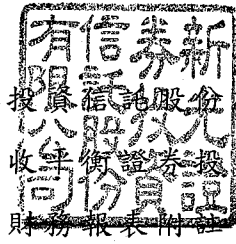 新光證
券投資
信託股份
有限公司
投資信託股份
收平衡證券投
財務報表附註